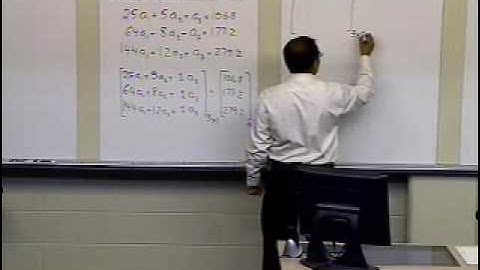 25a₁+5a₂+a₃=106.8
64a₁+8a₂+a₃=177.2
144a₁+12a₂+a₃=279.2
[25a₁+5a₂+1a₃] [106.8]
[64a₁+8a₂+1a₃] = [177.2]
[144a₁+12a₂+1a₃] 3x1 [279.2]